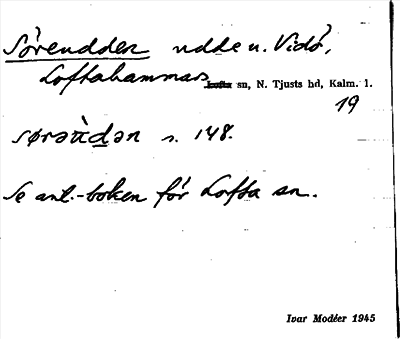 Sörendden udde u. Vidö,
Loftahammars Lofta sn, N. Tjusts hd, Kalm. l.
19
sørən̂dən s. 148.
Se ant.-boken för Lofta sn.
Ivar Modéer 1945